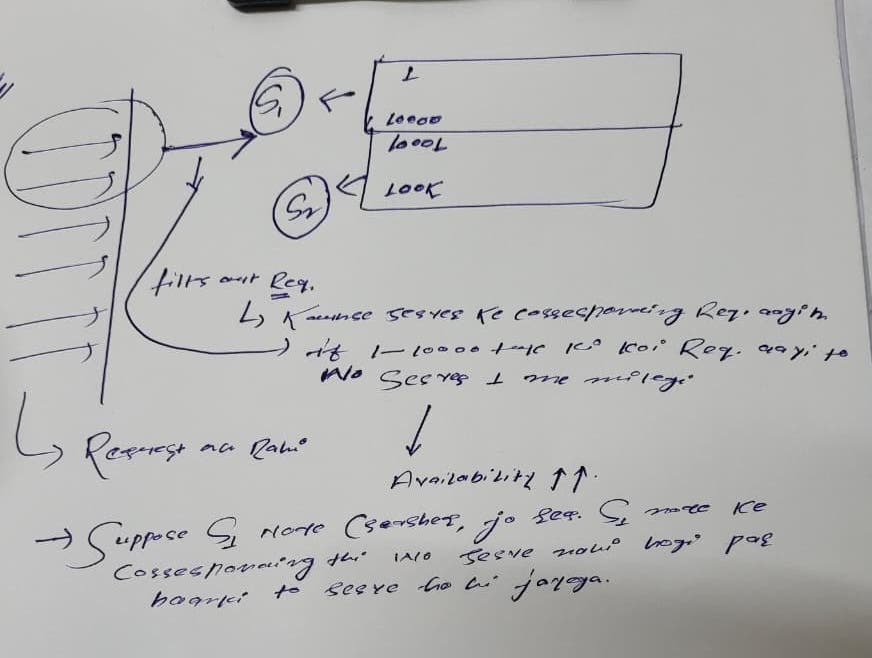 1
S1
10000
10001
S2
100K
filts out Req.
↳ Kaunse server ke corresponding Req. aayi h
if 1-10000 tak ki koi Req. aayi to
wo Server 1 me milegi
Request aa Rahi
Availability ↑↑.
→ Suppose S1 node crashed, jo req. S1 node ke
corresponding thi wo serve nahi hogi par
baaki to serve ho hi jayega.